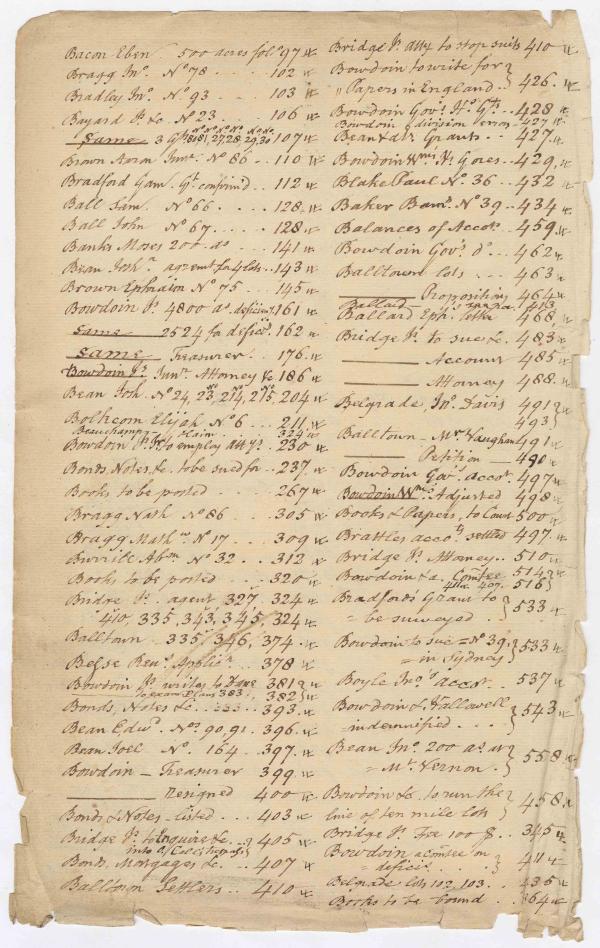 Bacon Eben. 500 acres fol. 97
Bragg Jno. No 78 .... 102
Bradley Jno. No 93 103
Bayard Js &c No 23 ... 106
Same 107
Brown Junr. No 86 - 110
Bradford Gam. Gt. confirmd .. 112
Ball Sam. No 66 .... 128
Ball John No 67 ..... 128
Banks Moses 200 as .. 141
Bean Josha. agremt for 4 lots .. 143
Brown Ephraim No 75 .. 145
Bowdoin Js. 4800 as. deficiency 161
Same 2524 for defici. 162
Same Treasurer . 176
Bowdoin Js. Junr. Attorney &c 186
Bean Josh. No 24, 23, 214, 215, 204
Bolkcom Elijah No 6 ... 211
Beauchamp Main 324
Bowdoin Js. Jr. to employ atty. 230
Bonds, Notes &c. to be sued for .. 237
Books to be posted ... 267
Bragg Nath No 86 ... 305
Bragg No 17 ... 309
Burrill Abm. No 32 .. 312
Books to be posted ... 320
Bridge Js. agent 327 324
410, 335, 343, 345, 324
Balltown 335, 346, 374
Besse Reu. Applicn .. 378
Bowdoin Js. writes to Dane 381
383, 382
Bonds, Notes &c ... 393
Bean Edwd. Nos 90, 91 . 396
Bean Joel No. 164 . 397
Bowdoin – Treasurer 399
resigned 400
Bonds & Notes listed .. 403
Bridge Js. to enquire &c. 405
into
Bonds, Mortgages &c. 407
Balltown Settlers .. 410
Bridge Js. atty to stop suits 410
Bowdoin to write for
Papers in England .. 426
Bowdoin Govr. Hs. Gts. .. 428
Bowdoin division error 427
Bean &als Grants .. 427
Bowdoin Wms. N. Gores .. 429
Blake Paul No 36 .. 432
Baker Barns. No 39 .. 434
Balances of Accots. .. 459
Bowdoin Govr. do .. 462
Balltown lots .. 463
Proposition 464
Ballard 413
Ballard Ephm. letter 468
Bridge Js. to sue &c. 483
Account 485
Attorney 488
Belgrade, Jno. Davis 491
493
Balltown – Mr. Vaughan 491
Petition 490
Bowdoin Govrs. accot. 497
Bowdoin Wms. Adjusted 498
Books & Papers, to Court 500
Brattles accots. settled 497
Bridge Js. Attorney .. 510
Bowdoin &c. Comtee 514
407. 516
Bradfords Grant to
be surveyed 533
Bowdoin to sue No 39
in Sydney 533
Boyle Jnos. accot. .. 537
Bowdoin & Hallowell
indemnified ... 543
Bean Jno. 200 as. at
Mt. Vernon. 558
Bowdoin &c. to run the
line of ten mile lots 458
Bridge Js. Fee 100 $ .. 345
Bowdoin a comtee on
deficits 411
Belgrade lots 102, 103 .. 435
Books to be bound . 364